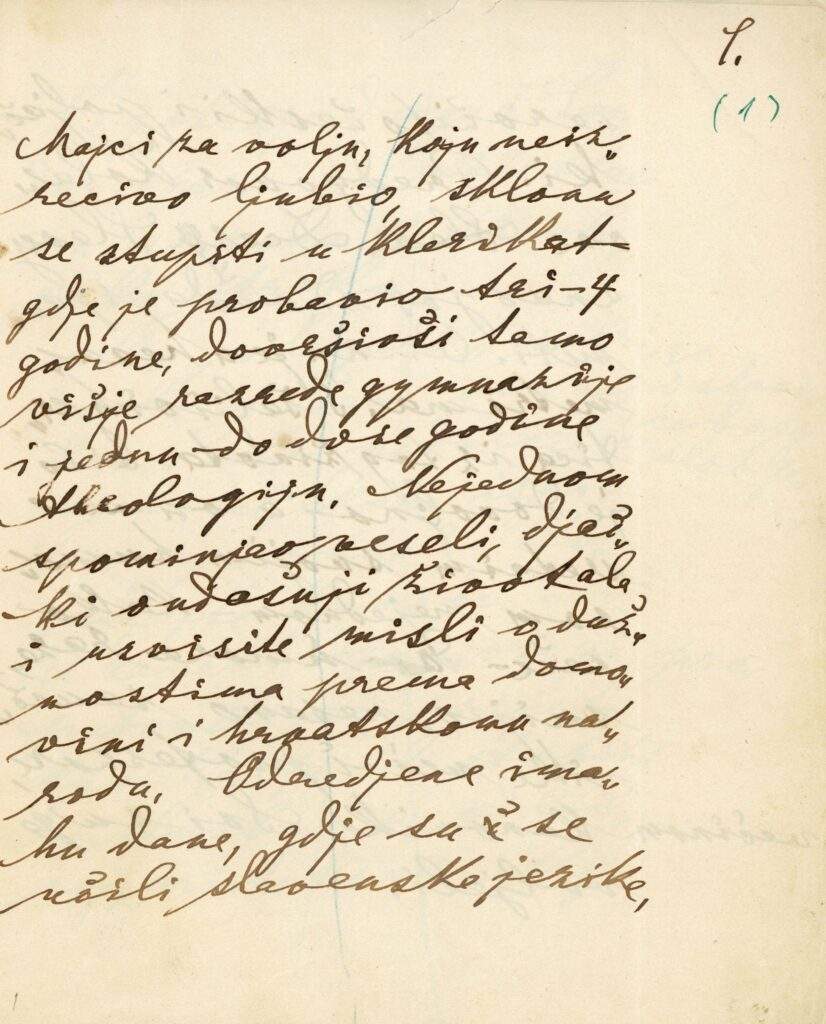 1.
(1)
Majci za volju, koju neiz„
recivo ljubio, sklonu
se stupiti u klerikat
gdje je probavio tri-4
godine, dovršivši tamo
višje razrede gymnazije
i jednu do dvie godine
theologiju. Nejednom
spominjao veseli, djač„
ki ondašnji život ala
i uzvisite misli o duž„
nostima prema domo„
vini i hrvatskomu na„
rodu. Odredjene ima„
hu dane, gdje su se
učili slavenske jezike,